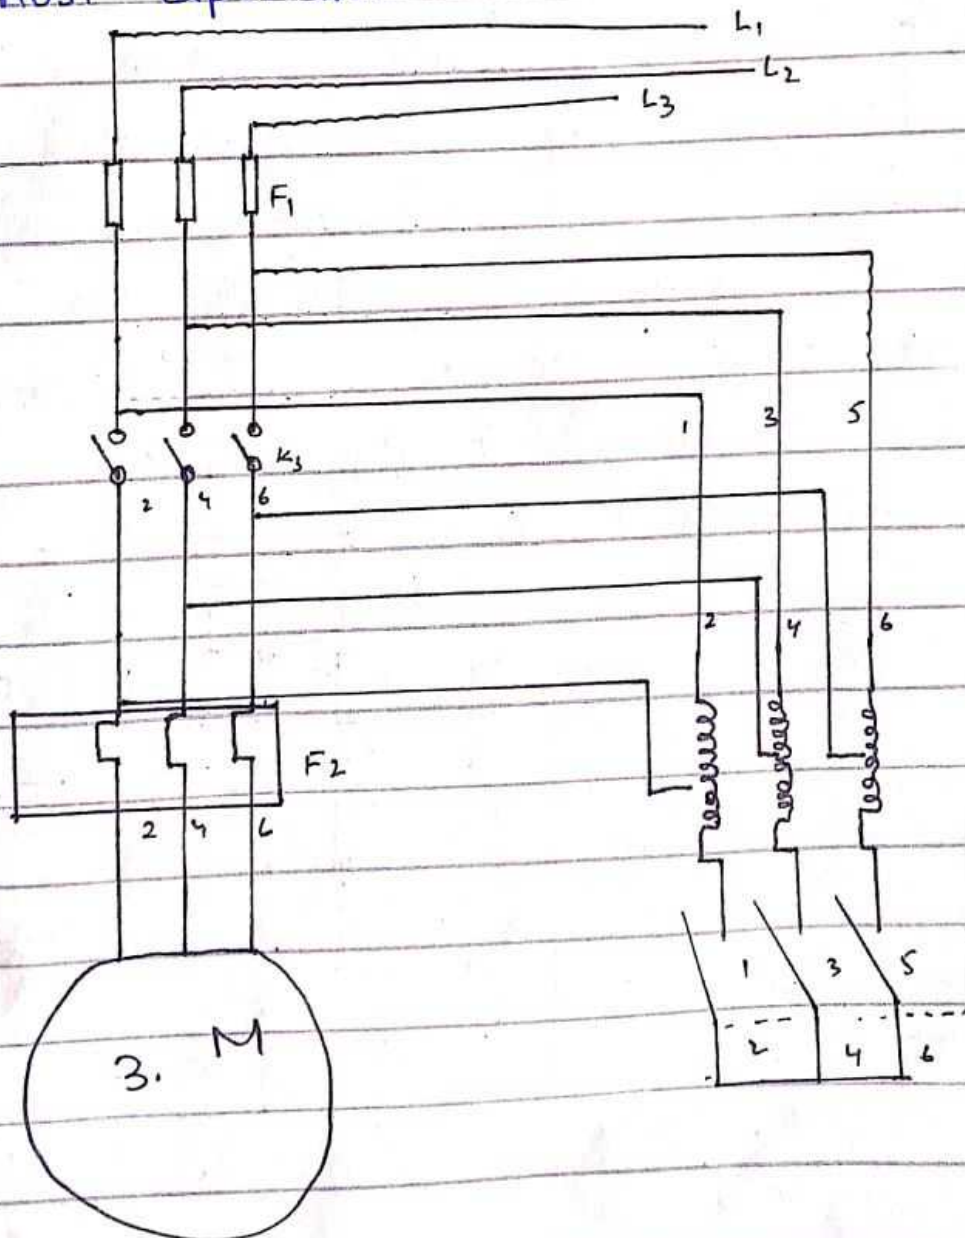 L1
L2
L3
F1
1 3 5
K3
2 4 6
2 4 6
F2
2 4 6
1 3 5
3. M
2 4 6